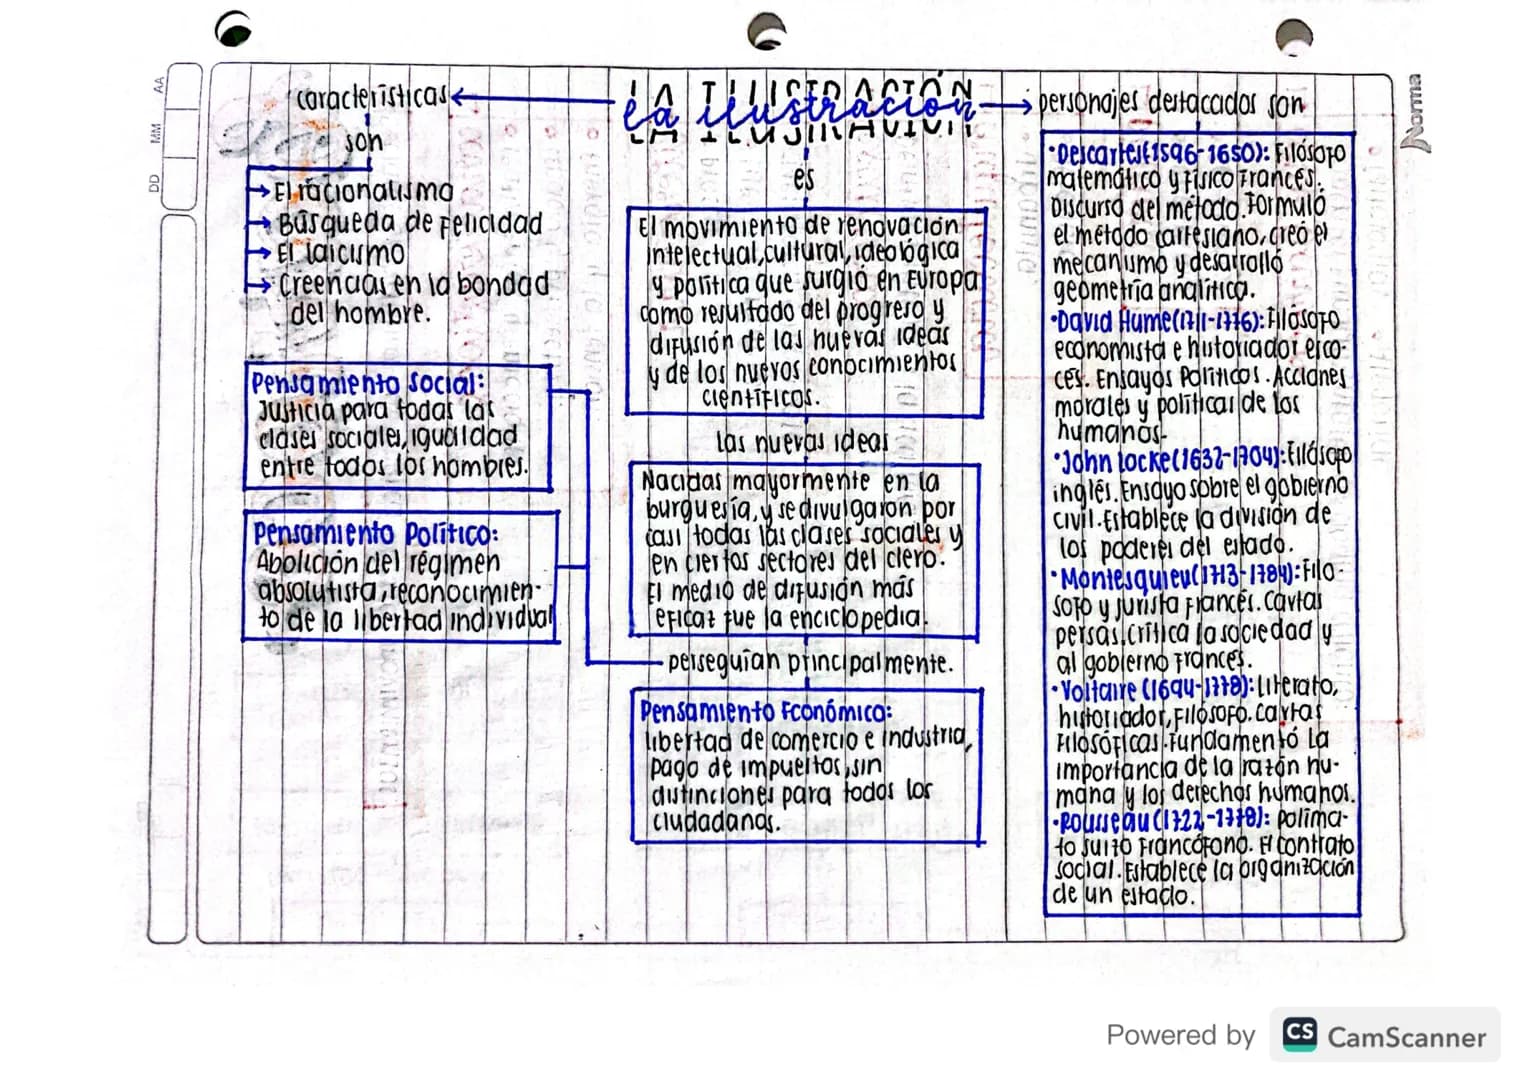 características
son
El racionalismo
Búsqueda de felicidad
El laicismo
Creencias en la bondad
del hombre.
Pensamiento Social:
Justicia para todas las
clases sociales, igualdad
entre todos los hombres.
Pensamiento Político:
Abolición del régimen
absolutista, reconocimien-
to de la libertad individual
LA ILUSTRACIÓN
la ilustración
es
El movimiento de renovación
intelectual, cultural, ideológica
y política que surgió en Europa
como resultado del progreso y
difusión de las nuevas ideas
y de los nuevos conocimientos
científicos.
las nuevas ideas
Nacidas mayormente en la
burguesía, y se divulgaron por
casi todas las clases sociales y
en ciertos sectores del clero.
El medio de difusión más
eficaz fue la enciclopedia.
perseguían principalmente.
Pensamiento Económico:
libertad de comercio e industria,
pago de impuestos, sin
distinciones para todos los
ciudadanos.
personajes destacados son
•Descartes(1596-1650): Filósofo
matemático y físico francés.
Discurso del método. Formuló
el método cartesiano, creó el
mecanismo y desarrolló
geometría analítica.
•David Hume(1711-1776): Filósofo
economista e historiador esco-
cés. Ensayos Políticos. Acciones
morales y políticas de los
humanos.
•John Locke(1632-1704): Filósofo
inglés. Ensayo sobre el gobierno
civil. Establece la división de
los poderes del estado.
•Montesquieu(1713-1784): Filo-
sofo y jurista francés. Cartas
persas. crítica la sociedad y
al gobierno francés.
•Voltaire (1694-1778): literato,
historiador, filósofo. cartas
filosóficas. Fundamentó la
importancia de la razón hu-
mana y los derechos humanos.
•Rousseau(1722-1778): polima-
to suizo francófono. El contrato
social. Establece la organización
de un estado.
AA
MM
DD
Norma
Powered by CS CamScanner